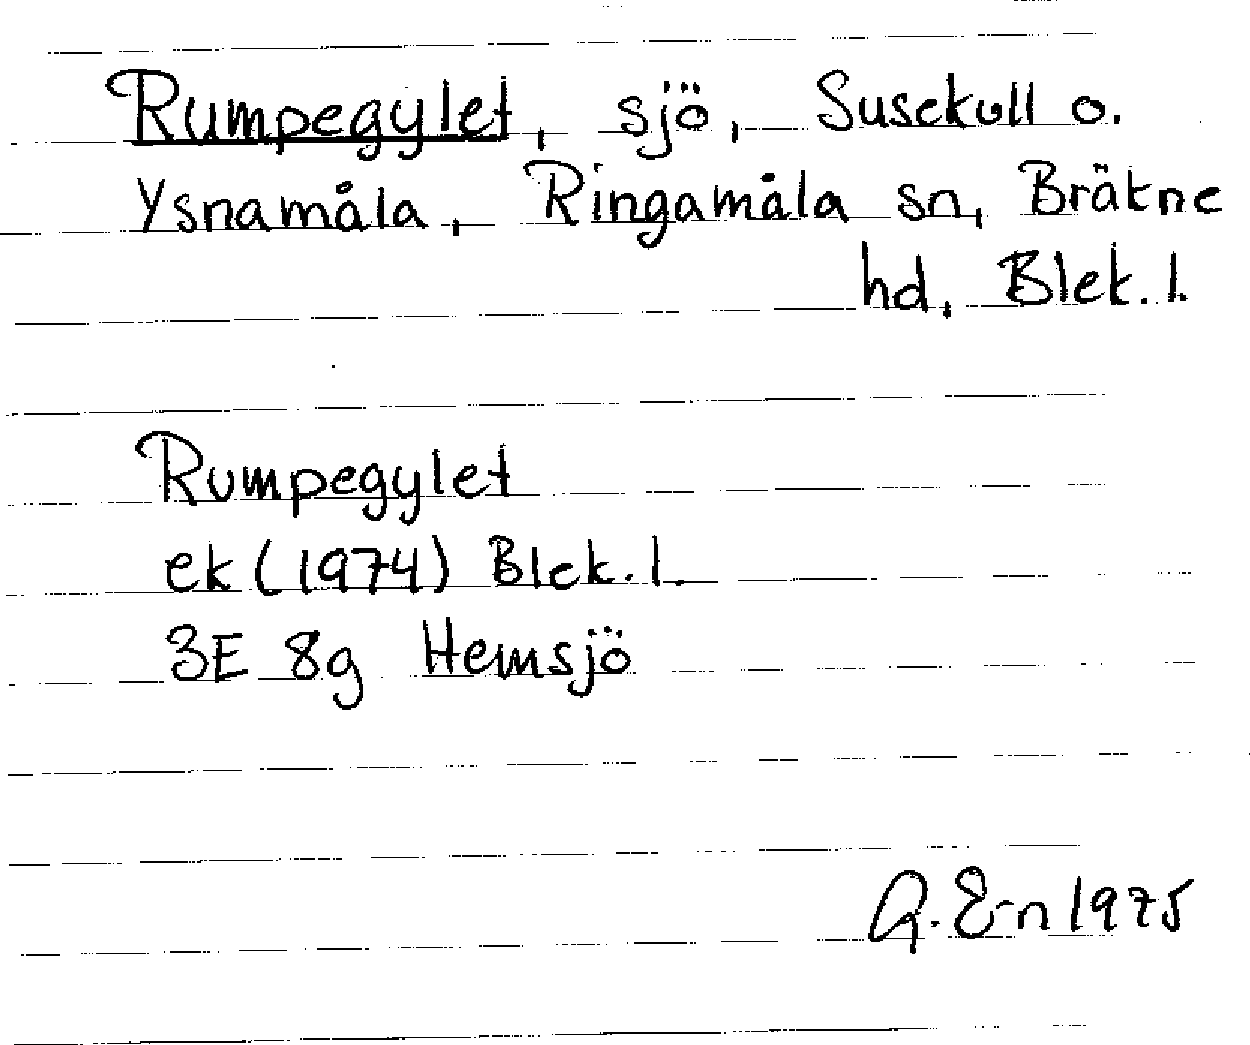 Rumpegylet, sjö, Susekull o.
Ysnamåla, Ringamåla sn, Bräkne
hd, Blek. l.
Rumpegylet
ek (1974) Blek. l.
3E 8g Hemsjö
G. Ern 1975